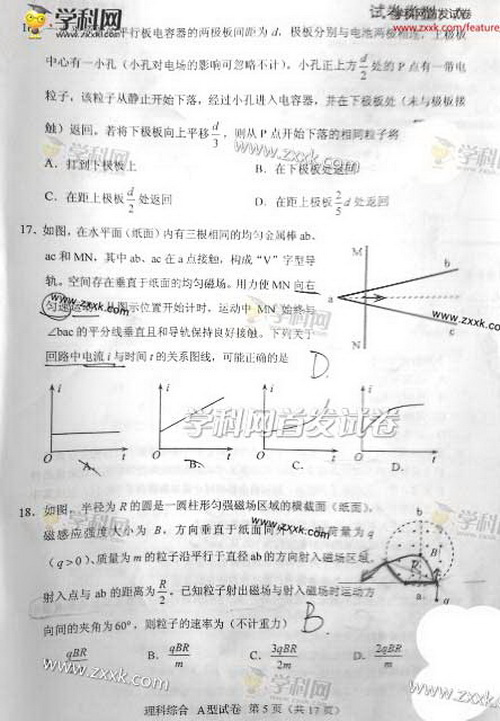 学科网
www.zxxk.com
试卷类型
学科网首发试卷
www.zxxk.com/feature
平行板电容器的两极板间距为 d，极板分别与电池两极相连，上极板
中心有一小孔（小孔对电场的影响可忽略不计）。小孔正上方 d/2 处的 P 点有一带电
粒子，该粒子从静止开始下落，经过小孔进入电容器，并在下极板处（未与极板接
触）返回。若将下极板向上平移 d/3，则从 P 点开始下落的相同粒子将
A．打到下极板上 B．在下极板处返回
C．在距上极板 d/2 处返回 D．在距上极板 2/5 d 处返回
17．如图，在水平面（纸面）内有三根相同的均匀金属棒 ab、
ac 和 MN，其中 ab、ac 在 a 点接触，构成“V”字型导
轨。空间存在垂直于纸面的均匀磁场。用力使 MN 向右
匀速运动，从图示位置开始计时，运动中 MN 始终与
∠bac 的平分线垂直且和导轨保持良好接触。下列关于
回路中电流 i 与时间 t 的关系图线，可能正确的是 D.
M
b
a
c
N
www.zxxk.com
i i i i
O t O t O t O t
A. B. C. D.
学科网首发试卷
18．如图，半径为 R 的圆是一圆柱形匀强磁场区域的横截面（纸面），
磁感应强度大小为 B，方向垂直于纸面向外，一电荷量为 q
（q>0）、质量为 m 的粒子沿平行于直径 ab 的方向射入磁场区域，
射入点与 ab 的距离为 R/2。已知粒子射出磁场与射入磁场时运动方
向间的夹角为 60°，则粒子的速率为（不计重力） B.
b
B
R
a
q
qBR B．qBR/m C．3qBR/2m D．2qBR/m
www.zxxk.com
理科综合 A型试卷 第 5 页（共 17 页）